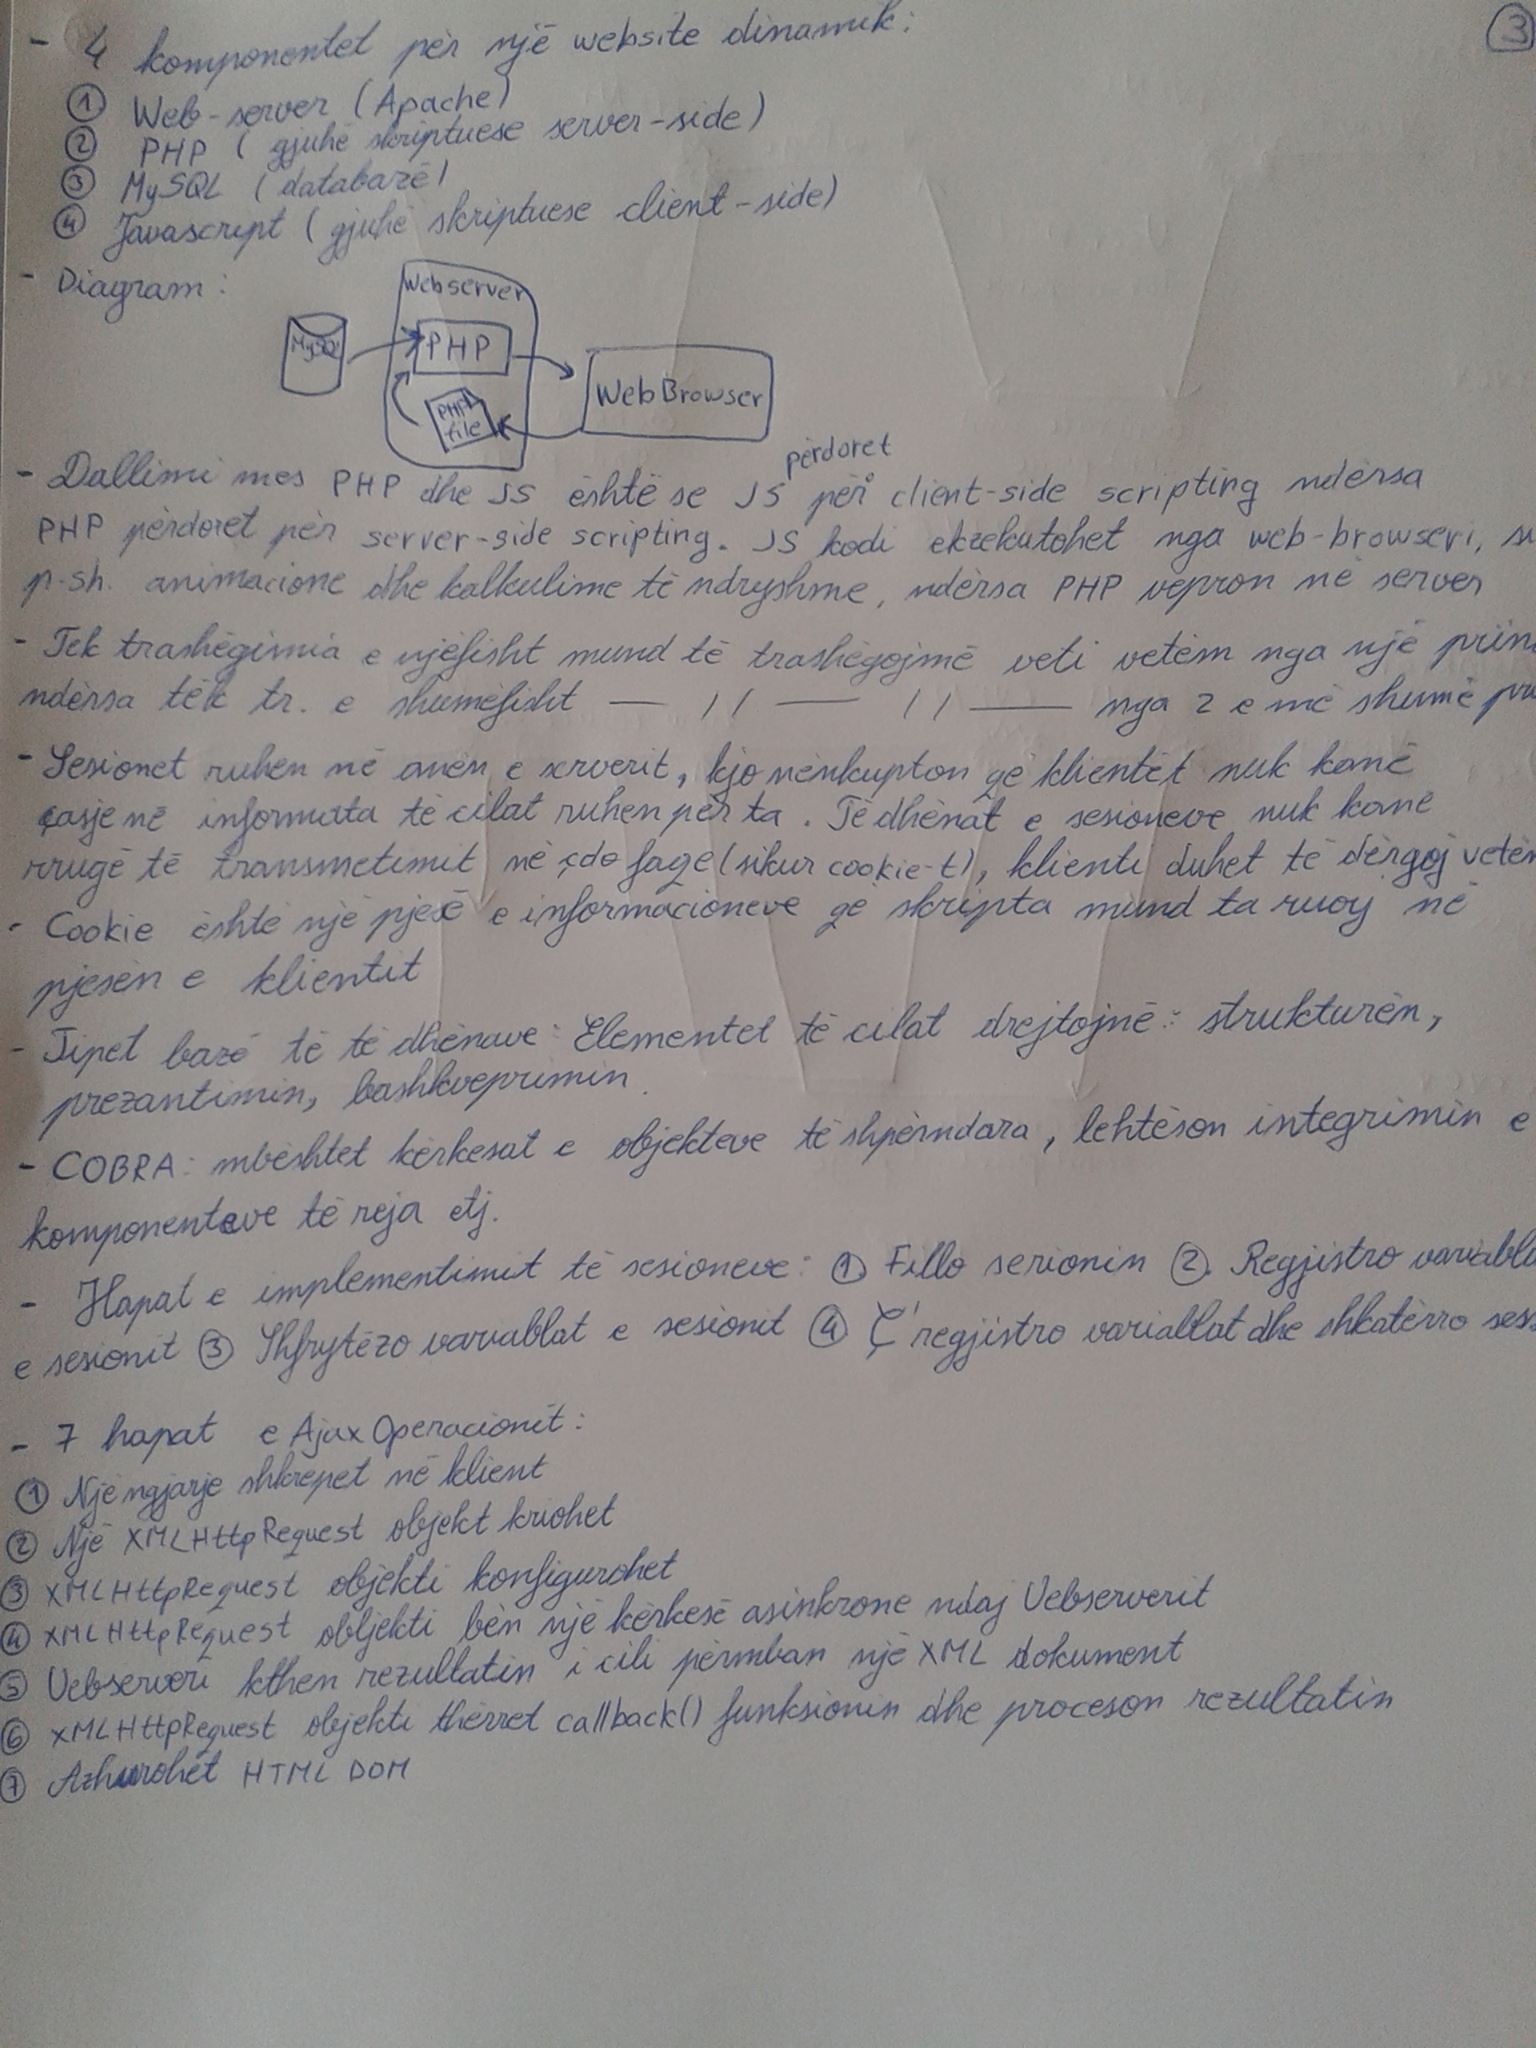 3
- 4 komponentet për një website dinamik:
① Web-server (Apache)
② PHP (gjuhë skriptuese server-side)
③ MySQL (databazë)
④ Javascript (gjuhë skriptuese client-side)
- Diagram:
Webserver
MySQL
PHP
PHP file
WebBrowser
përdoret
- Dallimi mes PHP dhe JS është se JS për client-side scripting ndërsa
PHP përdoret për server-side scripting. JS kodi ekzekutohet nga web-browseri, si
p.sh. animacione dhe kalkulime të ndryshme, ndërsa PHP vepron në server
- Tek trashëgimia e njëfisht mund të trashëgojmë veti vetëm nga një prin
ndërsa tek tr. e shumëfisht — // — // — nga 2 e më shumë pri
- Sesionet ruhen në anën e serverit, kjo nënkupton që klientët nuk kanë
çasje në informata të cilat ruhen për ta. Të dhënat e sesioneve nuk kanë
rrugë të transmetimit në çdo faqe (sikur cookie-t), klienti duhet të dërgoj vetëm
- Cookie është një pjesë e informacioneve që skripta mund ta ruaj në
pjesën e klientit
- Tipet bazë të të dhënave: Elementet të cilat drejtojnë: strukturën,
prezantimin, bashkveprimin.
- COBRA: mbështet kërkesat e objekteve të shpërndara, lehtëson integrimin e
komponenteve të reja etj.
- Hapat e implementimit të sesioneve: ① Fillo serionin ②. Regjistro variabla
e sesionit ③ Shfrytëzo variablat e sesionit ④ Ç'regjistro variablat dhe shkatërro ses
- 7 hapat e Ajax Operacionit:
① Një ngjarje shkrepet në klient
② Një XMLHttpRequest objekt kriohet
③ XMLHttpRequest objekti konfigurohet
④ XMLHttpRequest objekti bën një kërkesë asinkrone ndaj Uebserverit
⑤ Uebserveri kthen rezultatin i cili përmban një XML dokument
⑥ XMLHttpRequest objekti thërret callback() funksionin dhe proceson rezultatin
⑦ Azhurohet HTML DOM